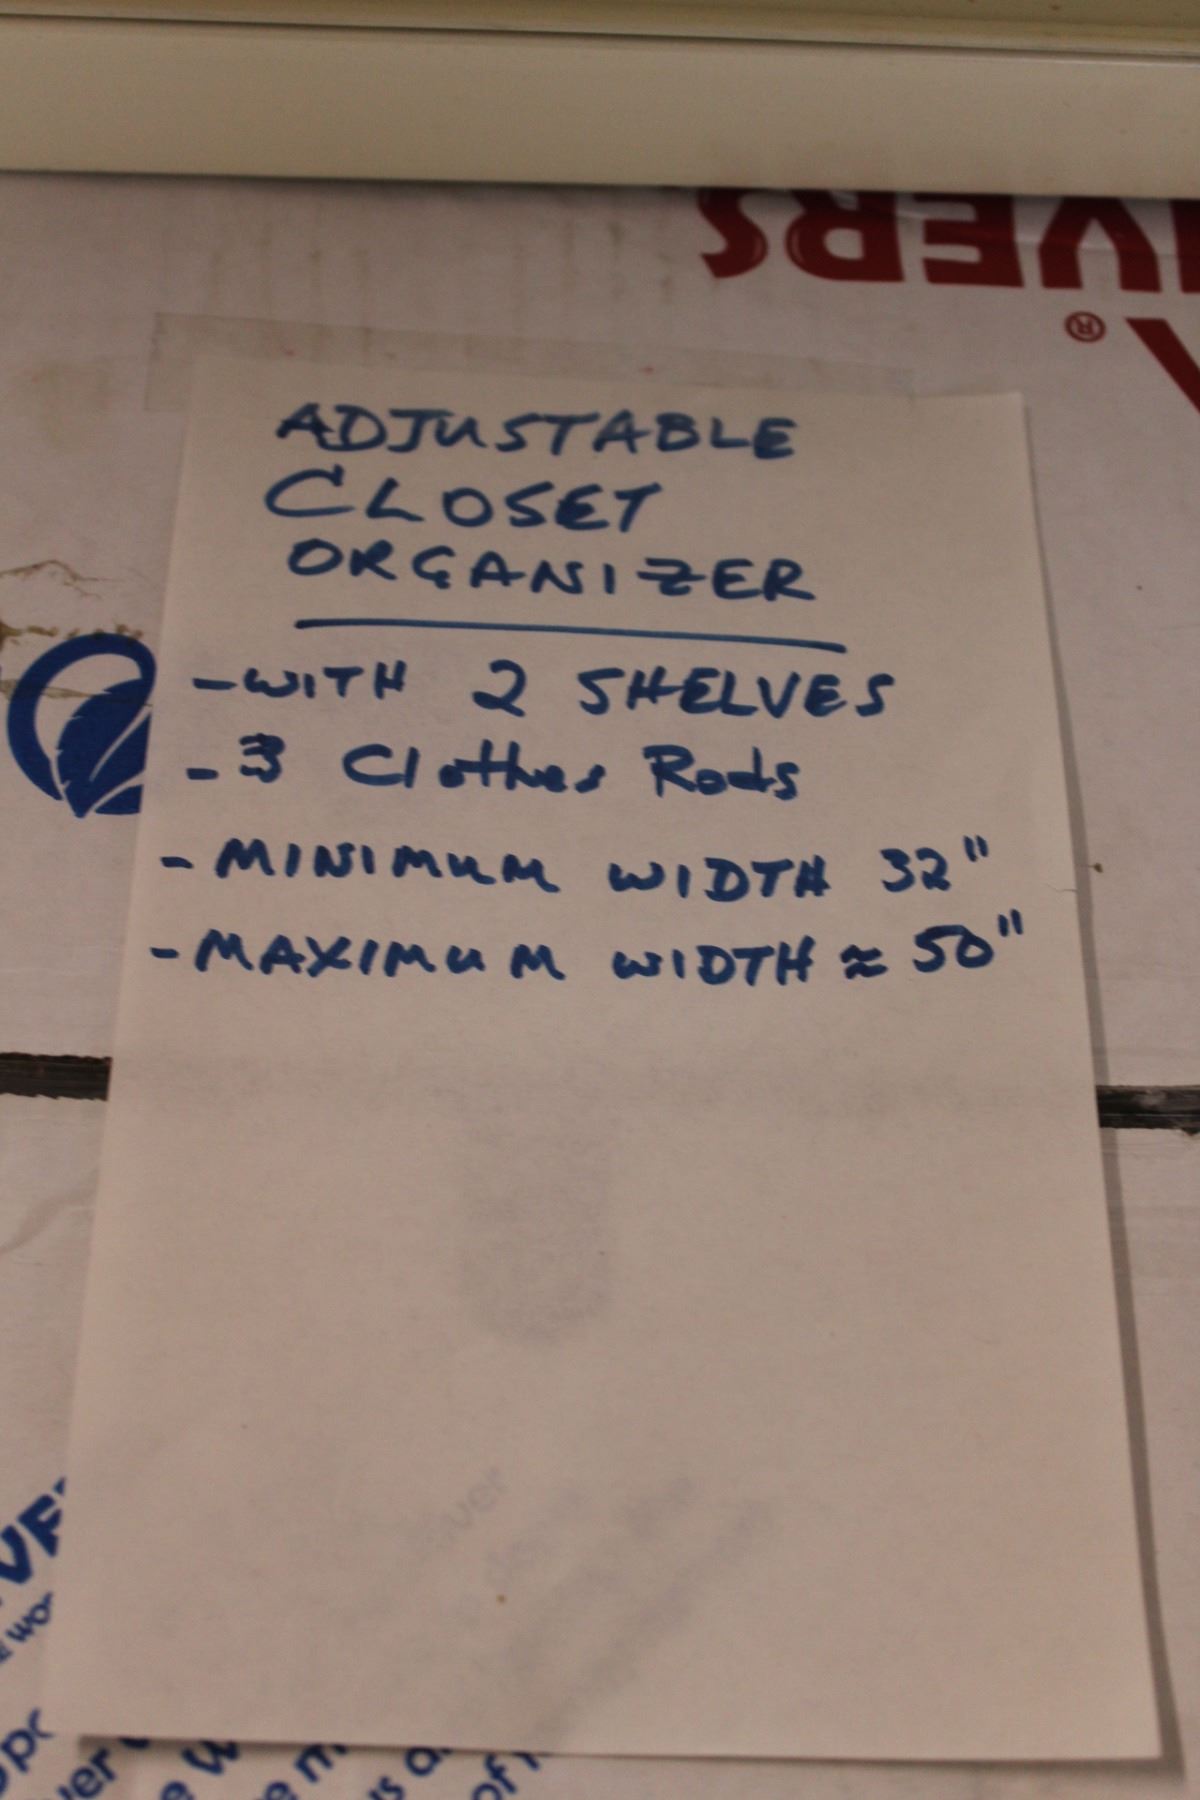 VERS
®
ADJUSTABLE
CLOSET
ORGANIZER
-WITH 2 SHELVES
-3 Clothes Rods
- MINIMUM WIDTH 32"
- MAXIMUM WIDTH ≈ 50"